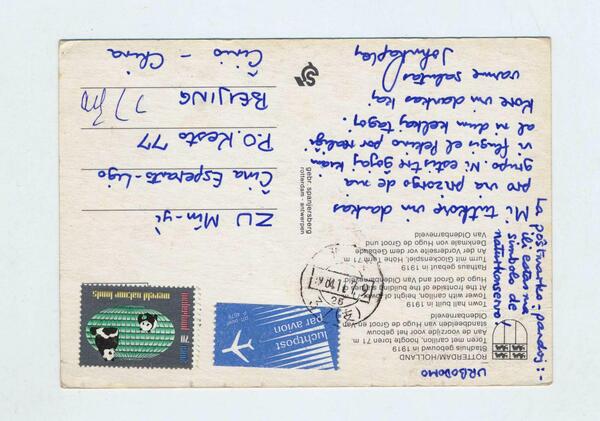 URBODOMO
ROTTERDAM-HOLLAND
Stadhuis gebouwd in 1919
Toren met carillon, hoogte toren 71 m.
Aan de voorzijde voor het gebouw de
standbeelden van Hugo de Groot en Van
Oldenbarneveld
Town hall built in 1919
Tower with carillon, height of tower 71 m.
At the frontside of the building statues of
Hugo de Groot and Van Oldenbarneveld
Rathaus gebaut in 1919
Turm mit Glockenspiel, Höhe Turm 71 m.
An der Vorderseite vor dem Gebäude
Denkmale von Hugo de Groot und
Van Oldenbarneveld
La poŝtmarko: pandoj :-
ili estas la
simbolo de
naturkonservo!
Mi tutkore vin dankas
pro via prizorgo de nia
grupo. Ni estis tre ĝojaj kiam
vi flugis el Pekino por realiĝi
al ni dum kelkaj tagoj.
Kore vin dankas kaj
varme salutas
gebr. spanjersberg
rotterdam - antwerpen
luchtpost
par avion
nederland
wereld natuur fonds
ZU Min-yi
Ĉina Esperanto-Ligo
P.O. Kesto 77
BEIJING
Ĉinio - China